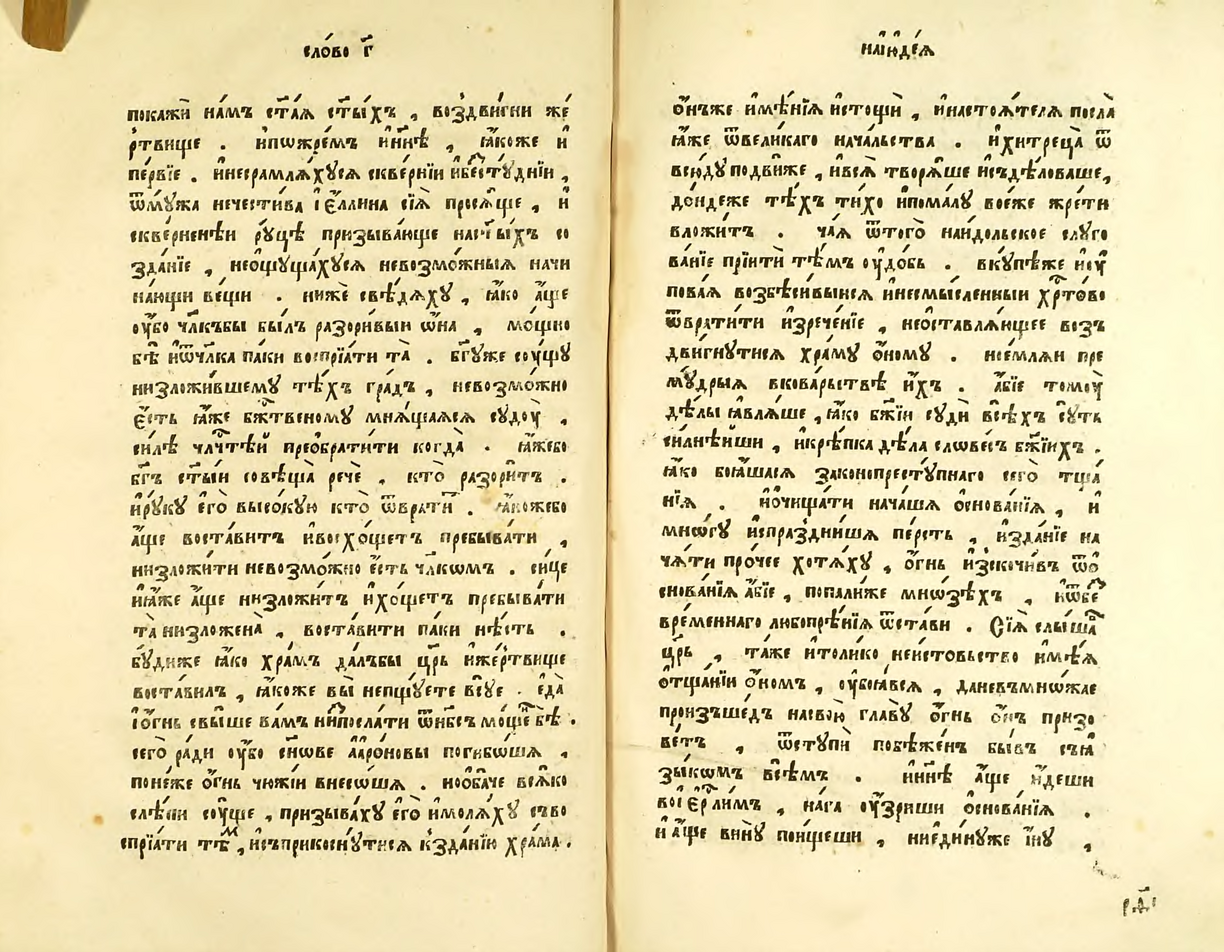 сло́во г҃
покажѝ на́мъ ст҃а́я ст҃ы́хъ , воздви́гни же́
ртвище . и҆пѡжре́мъ и҆ нн҃ѣ , ꙗ҆́коже и҆
пе́рвїе . и҆несрамлѧ́хꙋсѧ скве́рнїи и҆бестꙋ́днїи ,
ѿмꙋ́жа нечести́ва і҆є҆́ллина сїѧ̀ просѧ́ще , и҆
скверне́нѣи рꙋ́цѣ призыва́юще наст҃ы́хъ со
зда́нїе , неѡщꙋща́хꙋсѧ невозмо́жныѧ начи
на́ющи ве́щи . нижѐ свѣ́дѧхꙋ , ꙗ҆́ко а҆́ще
ѹ҆́бо чл҃къбы бы́лъ разори́выи ѡ҆на̀ , мо́щно
бѣ̀ и҆ѿчл҃ка па́ки воспрїѧ́ти та̀ . бг҃ꙋже сꙋ́щꙋ
низложи́вшемꙋ тѣ́хъ гра́дъ , невозмо́жно
є҆́сть ꙗ҆́же бж҃твеномꙋ мнѧ́щаѧсѧ сꙋдоу̀ ,
си́лѣ чл҃чтѣй преѡбрати́ти когда̀ . ꙗ҆́жебо
бг҃ъ ст҃ы́и совѣща̀ речѐ , кто̀ разори́тъ .
и҆рꙋ́кꙋ є҆го̀ высо́кꙋю кто̀ ѿврати́т . ꙗ҆́кожебо
а҆́ще воста́витъ и҆восхо́щетъ пребыва́ти ,
низложи́ти невозмо́жно є҆́сть чл҃кѡмъ . си́це
и҆ꙗ҆́же а҆́ще низложи́тъ и҆хо́щетъ пребыва́ти
та̀ низложе́на̀ , воста́вити па́ки нѣ́сть .
бꙋ́диже ꙗ҆́ко хра́мъ да́лъбы цр҃ь и҆же́ртвище
воста́вилъ , ꙗ҆́коже вы̀ непщꙋ́ете всꙋ́е . є҆да̀
і҆о҆́гнь свы́ше ва́мъ ни́спосла́ти ѿнб҃съ мо́щне бѣ̀ .
сего̀ ра́ди ѹ҆́бо сн҃ове а҆арѡ́новы поги́бѡшѧ ,
поне́же о҆́гнь чюжі́и внесо́шѧ . нооба́че всѧ́ко
слѣ́пи сꙋ́ще , призыва́хꙋ є҆го̀ и҆молѧ́хꙋ съво
спрїѧ́ти тѣ̀м , и҆съприкоснꙋ́тисѧ кзда́нїю хра́ма .
наі҆ꙋде́ѧ
ѻ҆́нъже и҆мѣ́нїѧ и҆стощѝ , и҆настоѧ́телѧ посла̀
ꙗ҆́же ѿвели́каго нача́льства . и҆хитреца̀ ѿ
всю́дꙋ подви́же , и҆всѧ̀ творѧ́ше и҆съдѣ́ловаше,
до́ндеже тѣ́хъ ти́хо и҆пома́лꙋ во́еже жре́ти
вложи́тъ . ча́ѧ ѿтого̀ наи́дольское слꙋго
ва́нїе прїитѝ тѣ́мъ ѹ҆до́бь . вкꙋ́пѣже и҆ѹ
пова́ѧ возбѣси́выисѧ и҆несмы́сленныи хр҃то́во
ѿврати́ти и҆зрече́нїе , неоставлѧ́ющее воз
дви́гнꙋтисѧ хра́мꙋ ѻ҆́номꙋ . и҆ е҆млѧ́и пре
мꙋ́дрыѧ вкова́рьствѣ и҆́хъ . а҆́бїе томоу̀
дѣ́лы ꙗ҆влѧ́ше , ꙗ҆́ко бж҃їи сꙋдѝ всѣ́хъ сꙋ́ть
си́лнѣйши , и҆крѣ́пка дѣ́ла слове́съ бж҃їихъ .
ꙗ҆́ко боꙗ҆́шасѧ законопрестꙋ́пнаго сего̀ тща
нїѧ . и҆ѡчища́ти нача́шѧ ѻ҆снова́нїѧ , и҆
мно́гꙋ и҆спра́здниша пе́рсть , и҆зда́нїе на
чѧ́ти про́чее хотѧ́хꙋ , о҆́гнь и҆зскочи́въ ѿѻ
снова́нїѧ а҆́бїе , попали́же мно́зѣхъ , и҆ѿбе
вре́меннаго любопрѣ́нїѧ ѿста́ви . Сїѧ̀ слы́ша
цр҃ь , та́же и҆толи́ко неи́стовьство и҆мѣ́ѧ
отща́нїи ѻ҆́номъ , ѹ҆боꙗ́всѧ , даневъмно́жае
произъше́дъ насвою̀ главꙋ̀ о҆́гнь ѻ҆́нъ призо
ве́тъ , ѿстꙋпѝ побѣже́нъ бы́въ съꙗ
зы́кѡмъ всѣ́мъ . и҆ нн҃ѣ а҆́ще и҆́деши
воі҆ер҃ли́мъ , на́га ѹ҆́зриши ѻ҆снова́нїѧ .
и҆ а҆́ще винꙋ̀ пои́щеши , ниеди́нꙋже и҆́нꙋ ,